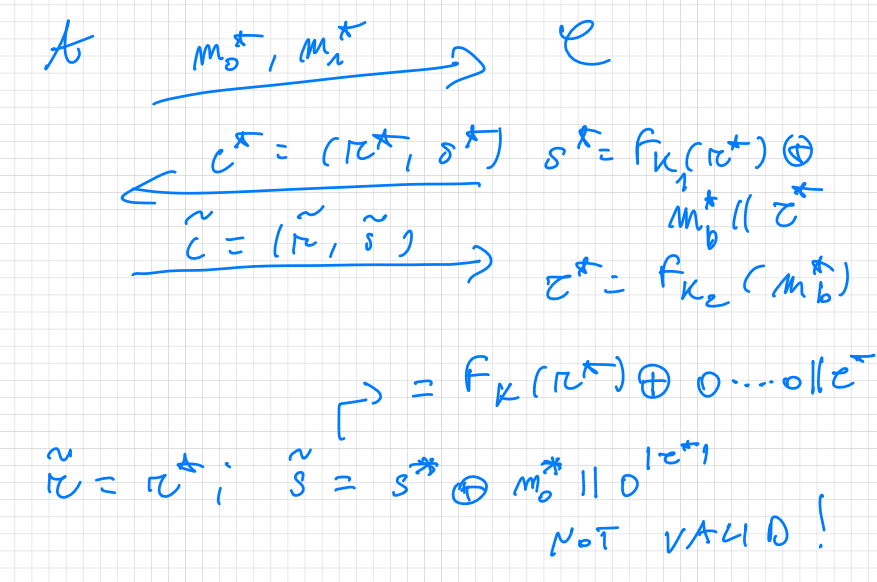 A m₀*, m₁* C
c* = (r*, s*) s* = F_K₁(r*) ⊕
m_b* || τ*
c̃ = (r̃, s̃)
τ* = F_K₂(m_b*)
= F_K(r*) ⊕ 0....0||τ*
r̃ = r*; s̃ = s* ⊕ m₀* || 0^|τ*|
NOT VALID!